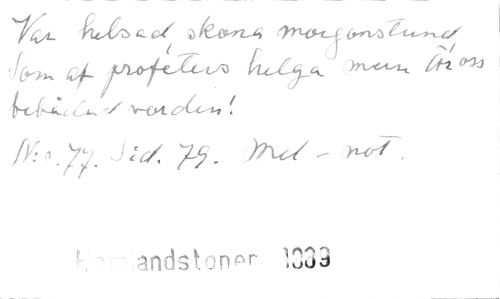 Var helsad, sköna morgonstund
Som af profeters helga mun Är oss
bebådad vorden!
N:o. 77. Sid. 79. Mel-not.
Hemlandstoner 1889